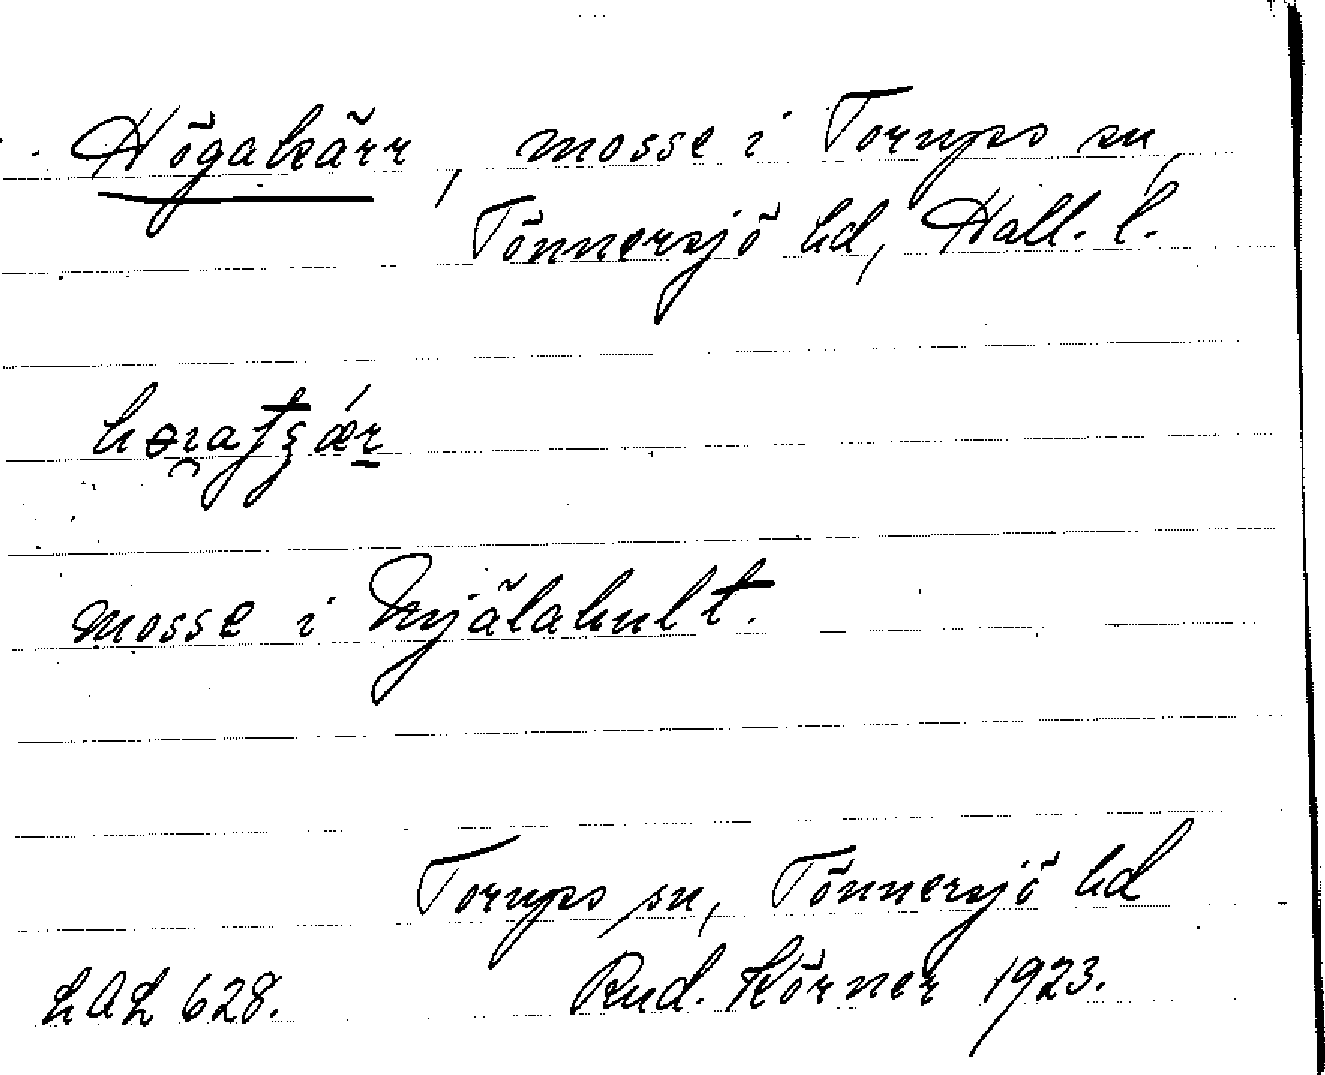 Högakärr, mosse i Torups sn,
Tönnersjö hd, Hall. l.
mosse i Mjälahult.
Torups sn, Tönnersjö hd
LAL 628. Rud. Körner 1923.